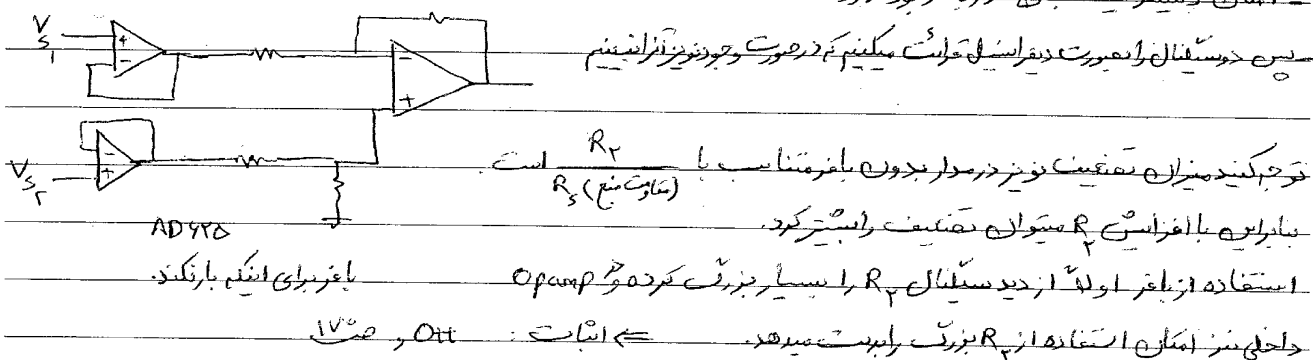 V_S1
پس دو سیگنال را بصورت دیفرانسیل قرائت میکنیم که در صورت وجود نویز آنرا نبینیم
V_S۲
توجه کنید میزان تضعیف نویز در مدار بدون بافر متناسب با R۲ / R_s (مقاومت منبع) است.
AD۶۲۵
بنابراین با افزایش R۲ میتوان تضعیف را بیشتر کرد.
استفاده از بافر اولاً از دید سیگنال R۲ را بسیار بزرگ کرده و Opamp بافر برای اینکه بار نکند.
داخلی نیز امکان استفاده از R۲ بزرگ را بدست میدهد. ⇐ اثبات : Ott و ص ۱۷